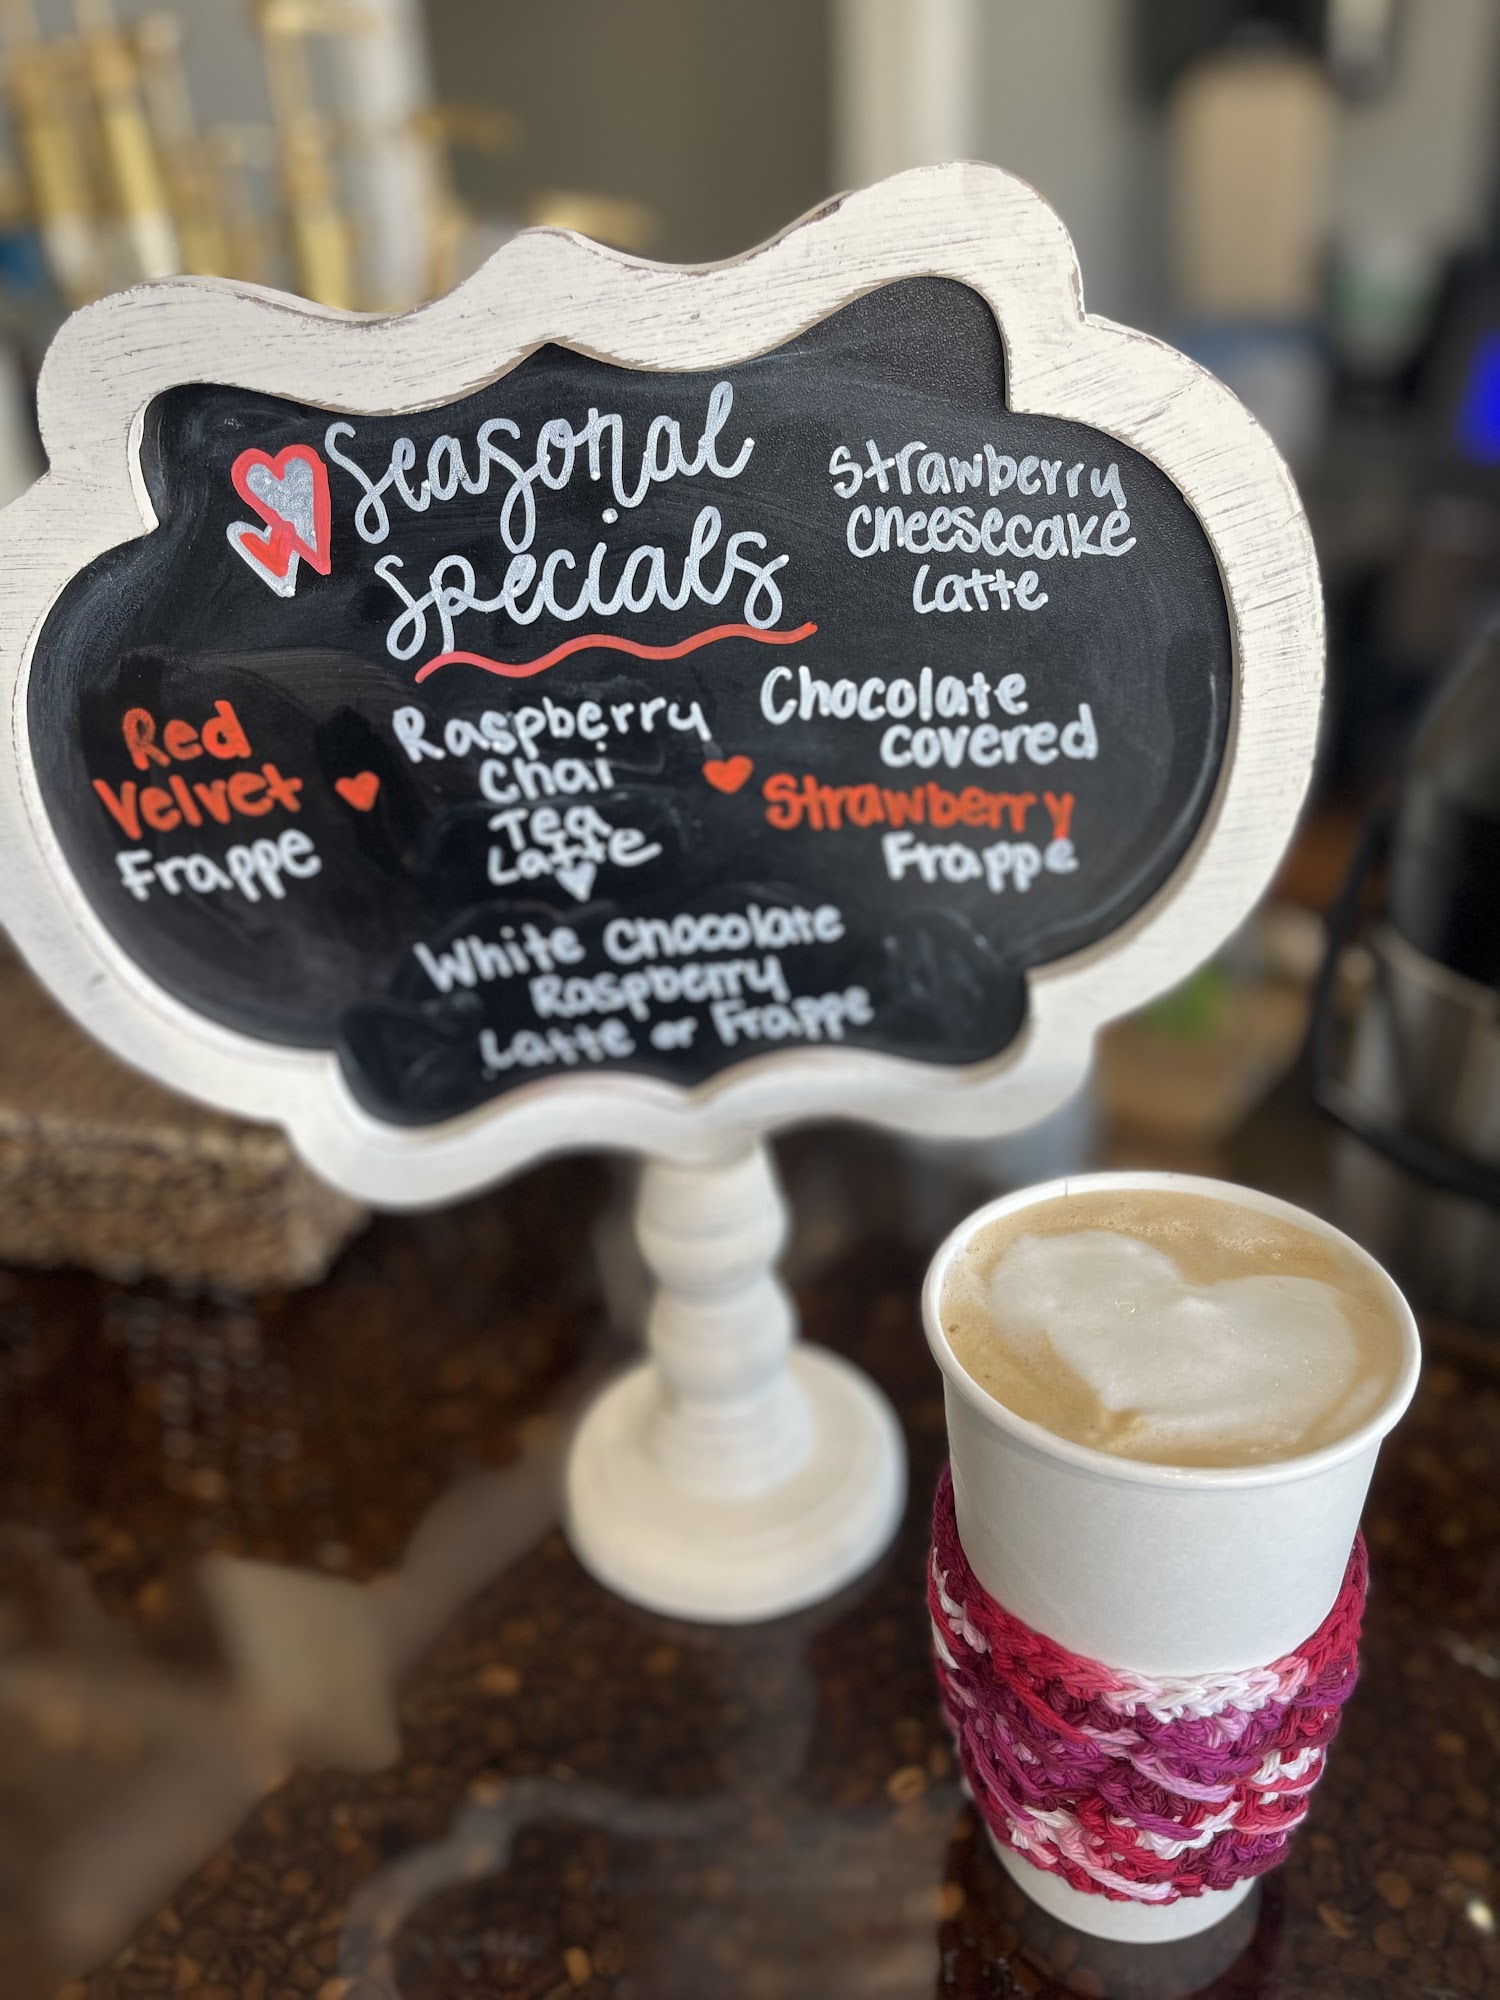 Seasonal
Specials
Strawberry
Cheesecake
Latte
Red
Velvet
Frappe
Raspberry
Chai
Tea
Latte
Chocolate
Covered
Strawberry
Frappe
White Chocolate
Raspberry
Latte or Frappe